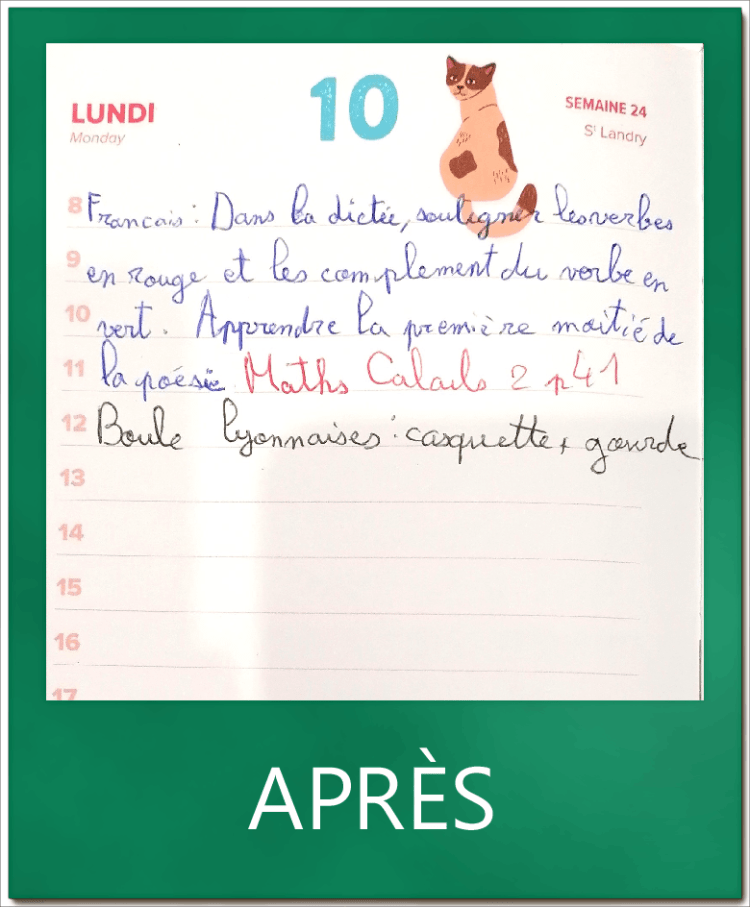 LUNDI
Monday
10
SEMAINE 24
Sᵗ Landry
8 Francais : Dans la dictée, souligner les verbes
9 en rouge et les complement du verbe en
10 vert. Apprendre la première moitié de
11 la poésie Maths Calculs 2 p41
12 Boule lyonnaises : casquette + gourde
13
14
15
16
17
APRÈS